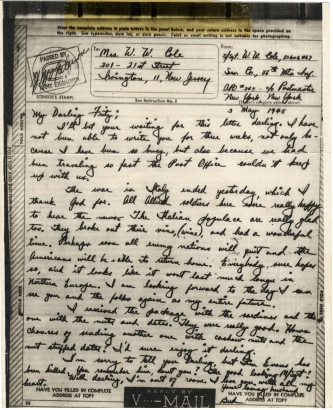 Print the complete address in plain letters in the panel below, and your return address in the space provided on
the right. Use typewriter, dark ink, or dark pencil. Faint or small writing is not suitable for photographing.
PASSED BY
ARMY EXAMINER
(CENSOR'S STAMP)
To:
Mrs. W. W. Cole
301 - 21st Street
Irvington, 11, New Jersey
See Instruction No. 2
From:
W. W. Cole
APO - c/o Postmaster
New York, New York
3 May 1945
My Darling
I'll bet your waiting for this letter darling. I have
not been able to write you for three weeks, not only be-
cause I have been so busy, but also because we had
been traveling so fast the Post Office couldn't keep
up with us.
The war in Italy ended yesterday, which I
thank God for. All Allied soldiers here were really happy
to hear the news. The Italian populace are really glad
too. They broke out their vino, (wine) and had a wonderful
time. Perhaps soon all enemy nations will quit and the
Americans will be able to return home. Everybody sure hopes
so, and it looks like it wont last much longer in
Northern Europe. I am looking forward to the day I can
see you and the folks again as my entire future.
I received the package with the sardines and the
one with the nuts and dates. They were really good. Have
chances of sending another one with cashew nuts and the
nut stuffed dates? I'd sure enjoy it darling.
I'm sorry to tell you Darling but Lt. Evans has
been killed. You remember him, don't you? The good looking
Well darling, I'm out of room. I love you with all my
heart.
Your loving husband
HAVE YOU FILLED IN COMPLETE
ADDRESS AT TOP?
REPLY BY
V···-MAIL
HAVE YOU FILLED IN COMPLETE
ADDRESS AT TOP?